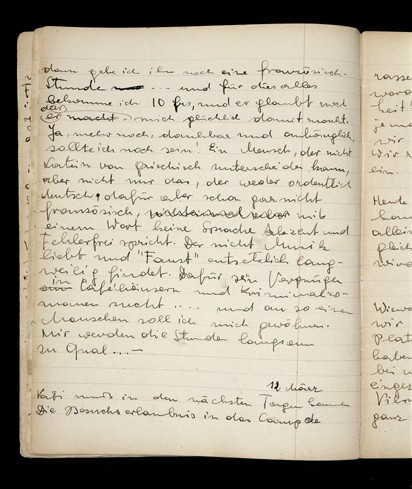 dann gebe ich ihm noch eine französisch-
Stunde ... und für dies alles
bekomme ich 10 frs, und er glaubt noch
das er mich glücklich damit macht.
Ja, mehr noch, dankbar und anhänglich
sollte ich noch sein! Ein Mensch, der nicht
Latein von griechisch unterscheiden kann,
aber nicht nur das, der weder ordentlich
deutsch, dafür aber schon gar nicht
französisch, mit
einem Wort keine Sprache akzent und
fehlerfrei spricht. Der nicht Musik
liebt und "Faust" entsetzlich lang-
weilig findet. Dafür sein Vergnügen
in Caféhäusern und Kriminalro-
manen sucht .... und an so einen
Menschen soll ich mich gewöhnen.
Mir werden die Stunden langsam
zu Qual...—
12 März
muss in den nächsten Tagen kommen
Die Besuchserlaubnis in das Camp de
rasse
Heute
allein
Wieva
wir
Plat
haben
bei
einges
ganz